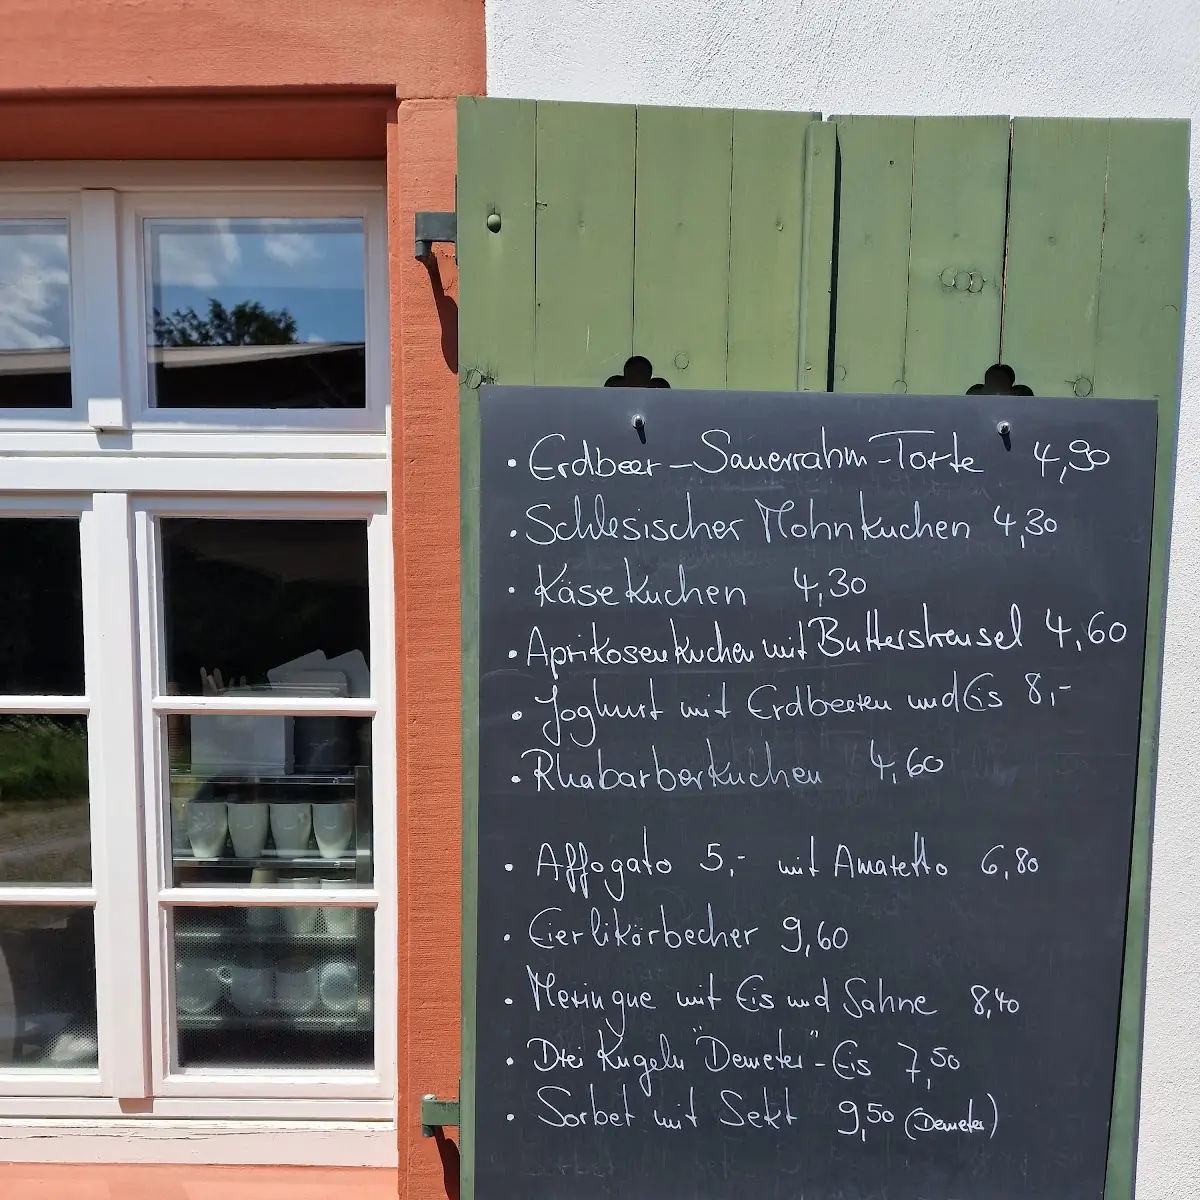 • Erdbeer-Sauerrahm-Torte 4,90
• Schlesischer Mohnkuchen 4,30
• Käsekuchen 4,30
• Aprikosenkuchen mit Butterstreusel 4,60
• Joghurt mit Erdbeeren und Eis 8,-
• Rhabarberkuchen 4,60
• Affogato 5,- mit Amaretto 6,80
• Eierlikörbecher 9,60
• Meringue mit Eis und Sahne 8,40
• Drei Kugeln "Demeter"-Eis 7,50
• Sorbet mit Sekt 9,50 (Demeter)